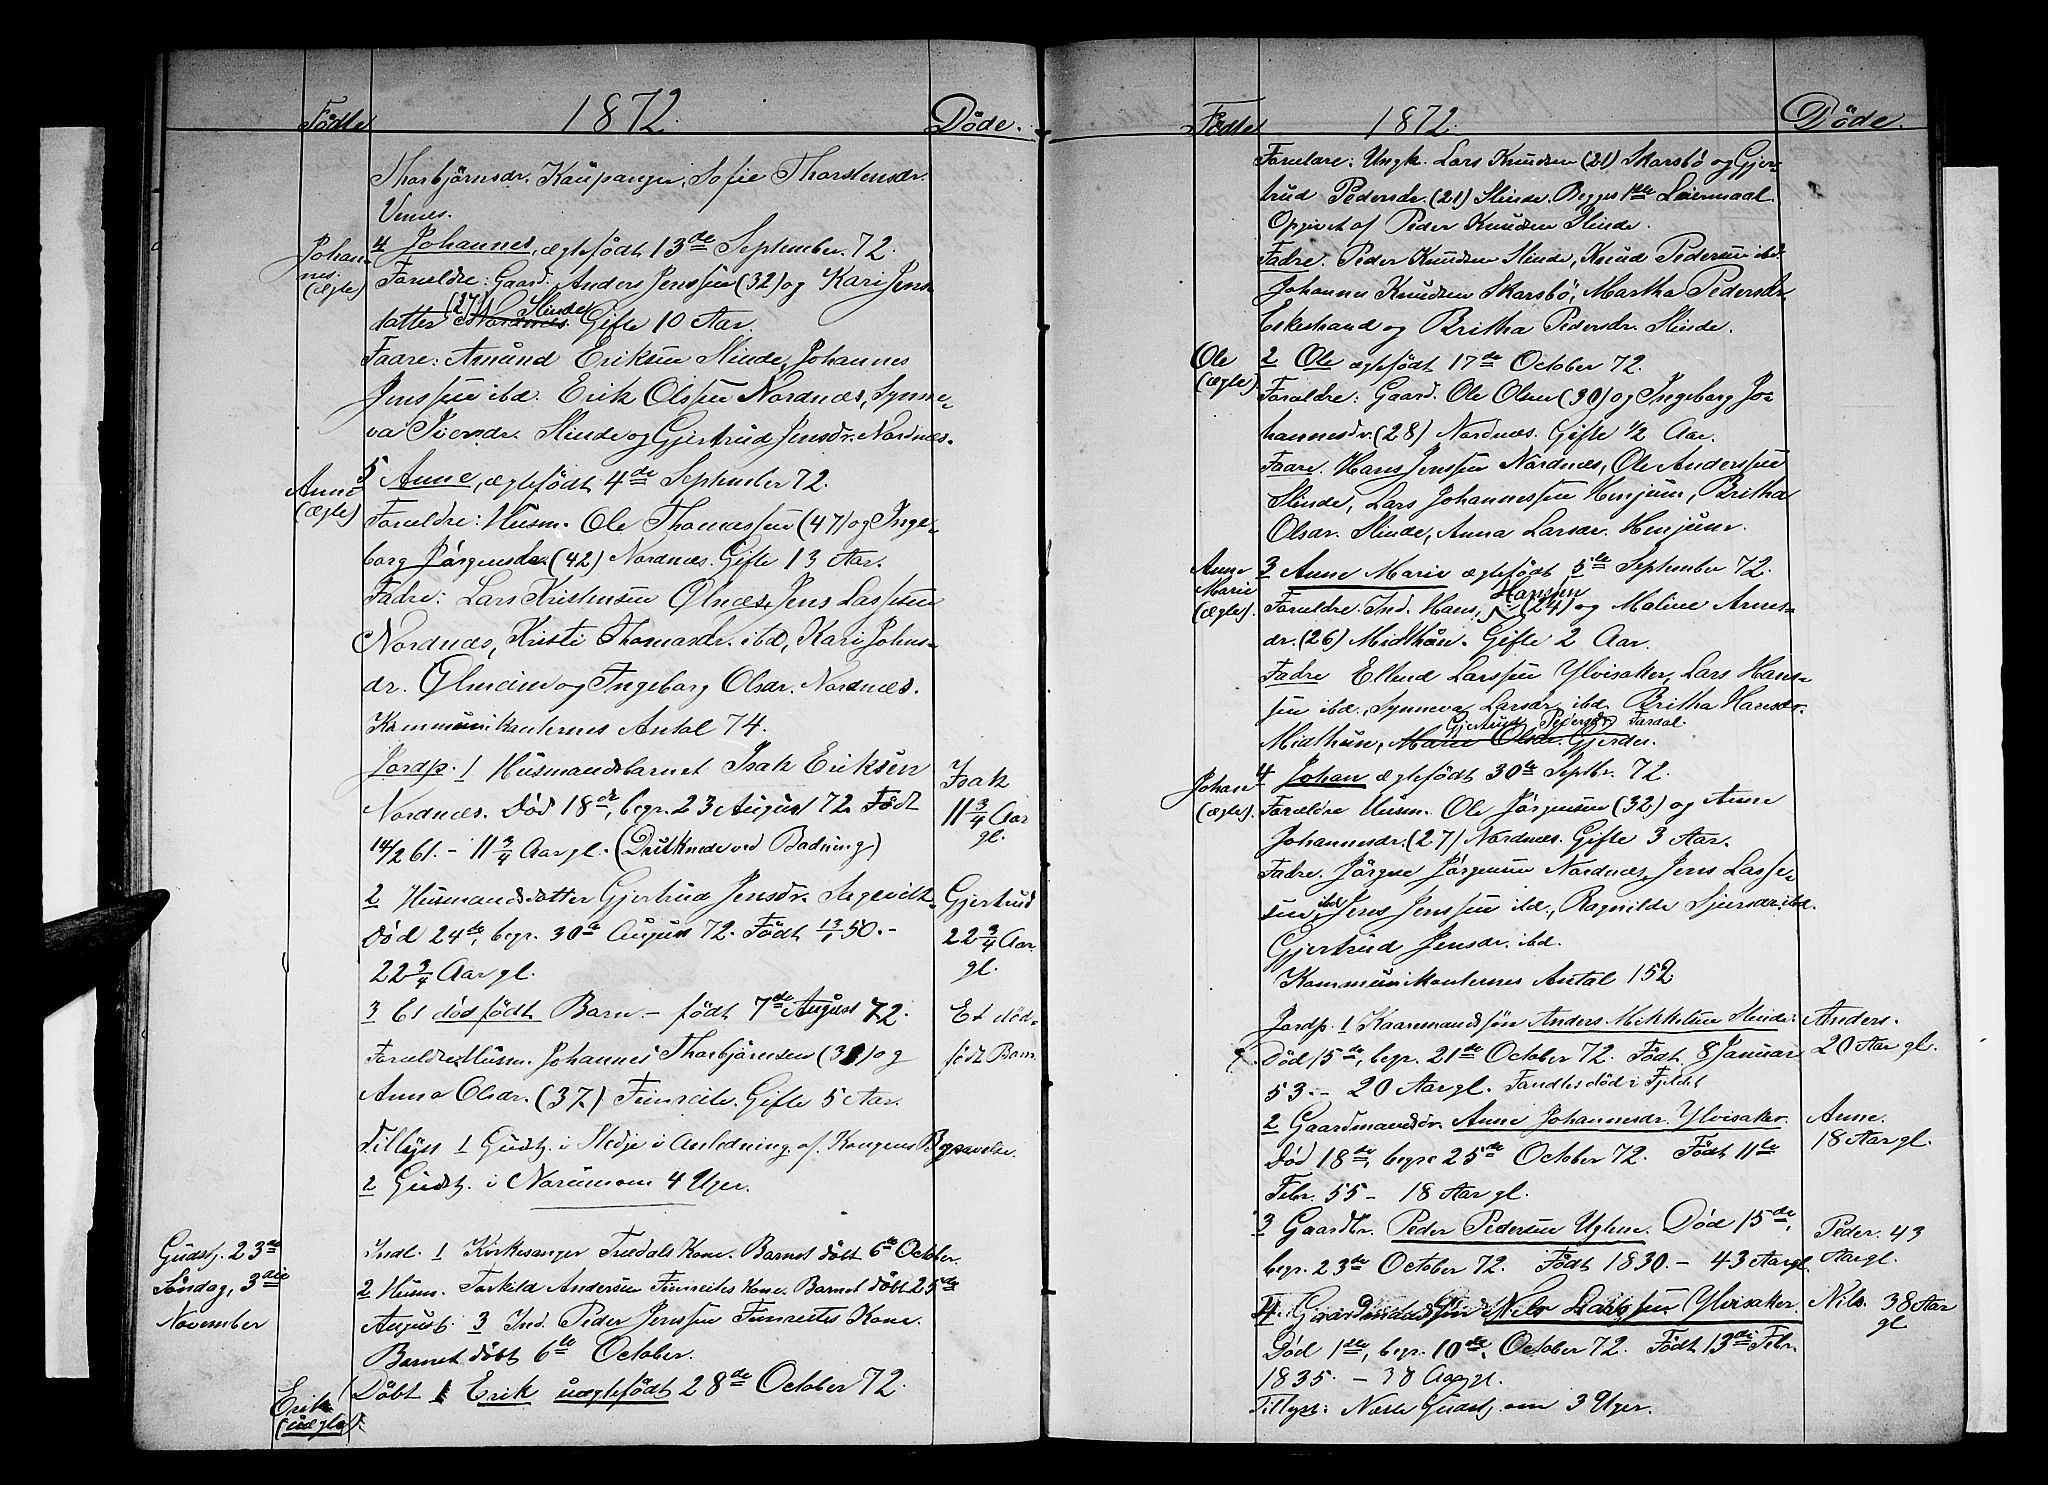 Födte 1872. Döde.
Thorbjörnsdr. Kaupanger, Sofie Thorstensdr.
Vines.
Johan-
nes.
(ægte)
4 Johannes, ægtefödt 13de September 72.
Foræeldre: Gaard. Anders Jenssen (32) og Kari Jens-
datter (27) Slinde Nordnæs. Gifte 10 Aar.
Fadre: Amund Eriksen Slinde, Johannes
Jenssen ibd. Erik Olssen Nordnæs, Synne-
va Iversdr. Slinde og Gjertrud Jensdr. Nordnæs.
Anne
(ægte)
5 Anne, ægtefödt 4de September 72.
Forældre: Husm. Ole Thomassen (47) og Inge-
borg Jörgensdr. (42) Nordnæs. Gifte 13 Aar.
Fadre: Lars Kristensen Ölnæs, Jens Lassesen
Nordnæs, Kristi Thomasdr. ibd, Kari Johns-
dr. Ölmeim og Ingeborg Olsdr. Nordnæs.
Kommunikanternes Antal 74.
Jordp. 1 Husmandsbarnet Isak Eriksen
Nordnæs. Död 18de, begr. 23 August 72. Födt
14/2 61. - 11 3/4 Aar gl. (Druknede ved Badning)
Isak
11 3/4 Aar
gl.
2 Husmandsdatter Gjertrud Jensdr. Sagevik
Död 24de, begr. 30te August 72. Födt 13/1 50. -
22 3/4 Aar gl.
Gjertrud
22 3/4 Aar
gl.
3 Et dödfödt Barn. - födt 7de August 72.
Forældre: Husm. Johannes Thorbjörnsen (31) og
Anna Olsdr. (37) Fimreite. Gifte 5 Aar.
Et död-
födt Barn.
Tillyst 1 Gudstj. i Stedje i Anledning af Kongens Begravelse.
2 Gudstj. i Norum om 4 Uger.
Gudstj. 23de
Söndag, 3die
November
Indl. 1 Kirkesanger Kone. Barnet döbt 6te October.
2 Husm. Torkild Andersen Fimreites Kone. Barnet döbt 25de
August. 3 Ind. Peder Jenssen Fimreites Kone.
Barnet döbt 6te October.
Erik
(uægte)
Döbt 1 Erik uægtefödt 28de October 72.
Födte 1872. Döde.
Forældre: Ungk. Lars Knudsen (21) Skarsbö og Gjer-
trud Pedersdr. (21) Slinde. Begges 1ste Leiermaal.
Opgivet af Peder Knudsen Slinde.
Fadre. Peder Knudsen Slinde, Knud Pedersen ibd.
Johannes Knudsen Skarsbö, Martha Pedersdr.
Eskestrand og Britha Pedersdr. Slinde.
Ole
(ægte)
2 Ole ægtefödt 17de October 72.
Forældre: Gaard. Ole Olsen (30) og Ingeborg Jo-
hannesdr. (28) Nordnæs. Gifte 1/2 Aar.
Fadre. Hans Jenssen Nordnæs, Ole Anderssen
Slinde, Lars Johannessen Henjum, Britha
Olsdr. Slinde, Anna Larsdr. Henjum.
Anne
Marie
(ægte)
3 Anne Marie ægtefödt 5te September 72.
Forældre. Ind. Hans Hansen (24) og Maline Arnes-
dr. (26) Midthun. Gifte 2 Aar.
Fadre Ellend Larssen Ylvisaker, Lars Hans-
sen ibd., Synneva Larsdr. ibd. Britha Hansdr.
Midthun, Marie Olsdr. Gjerdes. Gjertrud Pedersdr. Fardal.
Johan
(ægte).
4 Johan ægtefödt 30te Septbr. 72.
Forældre Husm. Ole Jörgensen (32) og Anne
Johannesdr. (27) Nordnæs. Gifte 3 Aar.
Fadre. Jörgen Jörgensen Nordnæs, Jens Lasse-
sen ibd Jens Jenssen ibd., Ragnilde Sjursdr. ibd.
Gjertrud Jensdr. ibd.
Kommunikanternes Antal 152
Jordp. 1 Kaarmandssön Anders Mikkelsen Slinde.
Död 15de, begr. 21de October 72. Födt 8 Januar
53. - 20 Aar gl. Fandtes död i Fjeldet
Anders.
20 Aar gl.
2 Gaardmandsdr. Anne Johannesdr. Ylvisaker.
Död 18de, begr. 25de October 72. Födt 11te
Febr. 55 - 18 Aar gl.
Anne.
18 Aar gl.
3 Gaardbr. Peder Pedersen Uglum. Död 15de,
begr. 23de October 72. Födt 1830. - 43 Aar gl.
Peder. 43
Aar gl.
4 Gaardmandssön Nils Larssen Ylvisaker.
Död 1ste, begr. 10de October 72. Födt 13de Febr.
1835. - 38 Aar gl.
Nils. 38 Aar
gl
Tillyst: Næste Gudstj. om 3 Uger.